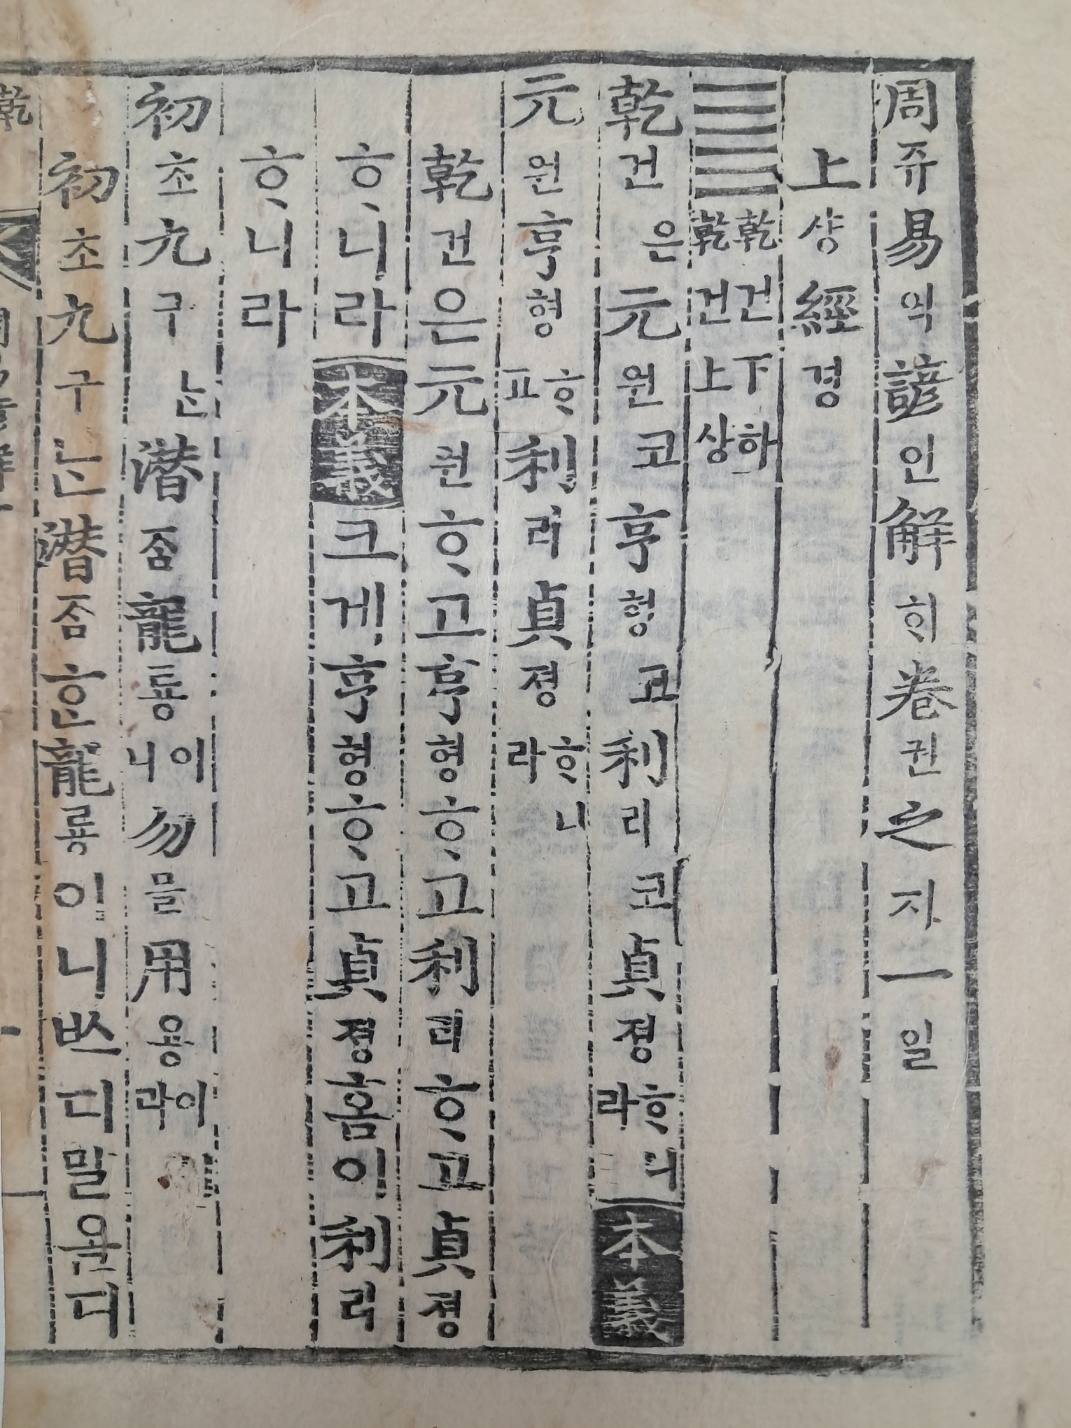 周쥬易역諺언解ᄒᆡ卷권之지一일
上샹經경
䷀乾건下하乾건上상
乾건은元원코亨형코利리코貞졍ᄒᆞ니라本義
元원亨형ᄒᆞ고利리貞졍ᄒᆞ니라
乾건은元원ᄒᆞ고亨형ᄒᆞ고利리ᄒᆞ고貞졍
ᄒᆞ니라本義크게亨형ᄒᆞ고貞졍홈이利리
ᄒᆞ니라
初초九구ᄂᆞᆫ潛ᄌᆞᆷ龍룡이니勿믈用용이라
初초九구ᄂᆞᆫ潛ᄌᆞᆷᄒᆞᆫ龍룡이니ᄡᅳ디말올디
乾